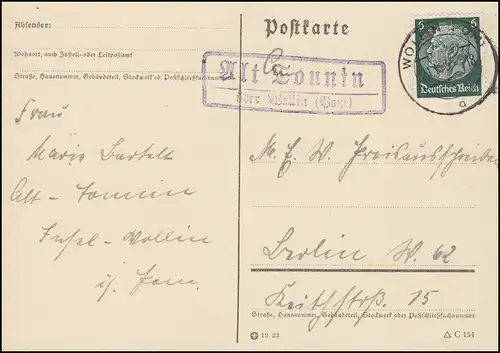 Absender:
Wohnort, auch Zustell- oder Leitpostamt
Straße, Hausnummer, Gebäudeteil, Stockwerk od. Postschließfachnummer
Frau
Marie Bartelt
Alt-Tonnin
Insel-Wollin
i. Pom.
Postkarte
Alt Tonnin
über Wollin (Pom)
6 6
Deutsches Reich
WOLLIN
a
M. E. W. Preisausschreiben
Berlin W. 62
Keithstrß. 15
Straße, Hausnummer, Gebäudeteil, Stockwerk oder Postschließfachnummer
12. 33
C 154